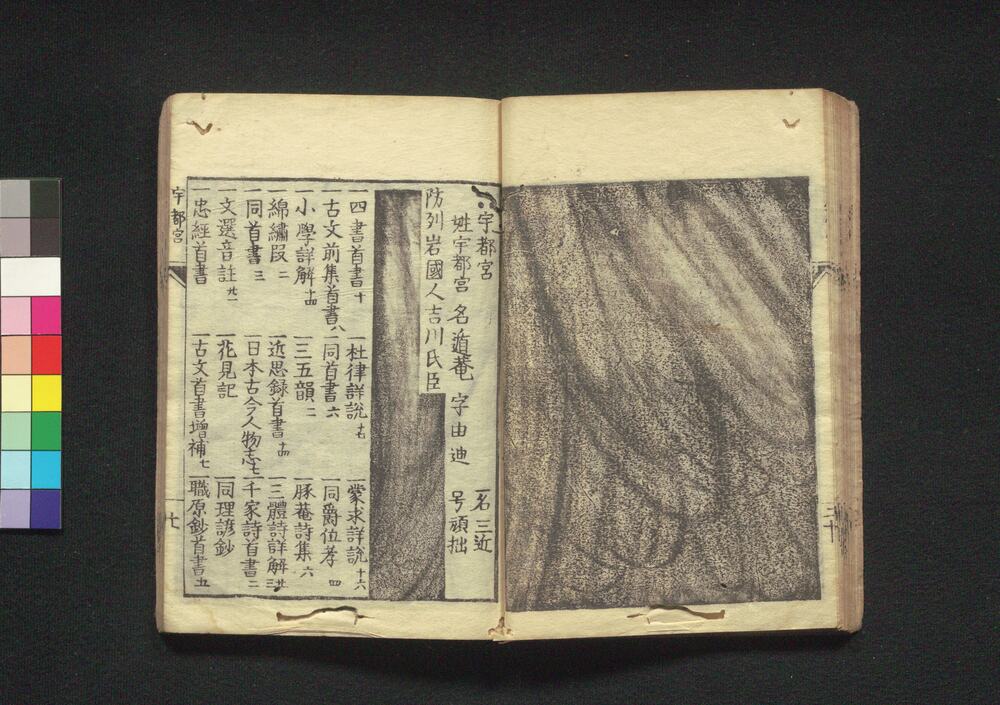 三十
宇都宮
姓宇都宮 名遁菴 字由迪 一名三近
号頑拙
防列岩國人吉川氏臣
一四書首書十 一杜律詳説十七 一蒙求詳説十六
一古文前集首書八 一同首書六 一同爵位考四
一小學詳解十四 一三五韻二 一豚菴詩集六
一綿繡段二 一近思録首書十四 一三體詩詳解廿三
一同首書三 一日本古今人物志七 一千家詩首書二
一文選音註廿一 一花見記 一同理諺鈔
一忠經首書 一古文首書增補七 一職原鈔首書五
宇都宮
七